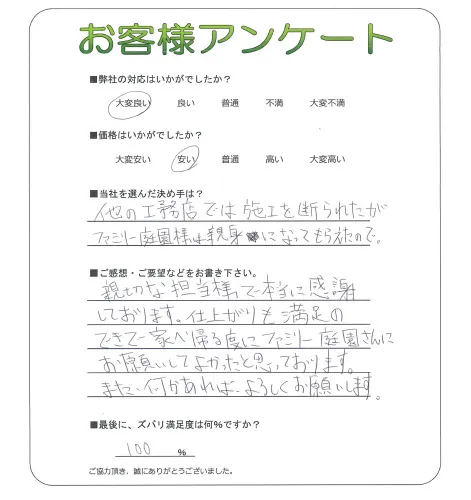 お客様アンケート
■弊社の対応はいかがでしたか？
大変良い 良い 普通 不満 大変不満
■価格はいかがでしたか？
大変安い 安い 普通 高い 大変高い
■当社を選んだ決め手は？
他の工務店では施工を断られたが
ファミリー庭園様は親身になってもらえたので。
■ご感想・ご要望などをお書き下さい。
親切な担当様で本当に感謝
しております。仕上がりも満足の
できで家へ帰る度にファミリー庭園さんに
お願いしてよかったと思っております。
また、何かあれば、よろしくお願いします。
■最後に、ズバリ満足度は何%ですか？
100 %
ご協力頂き、誠にありがとうございました。